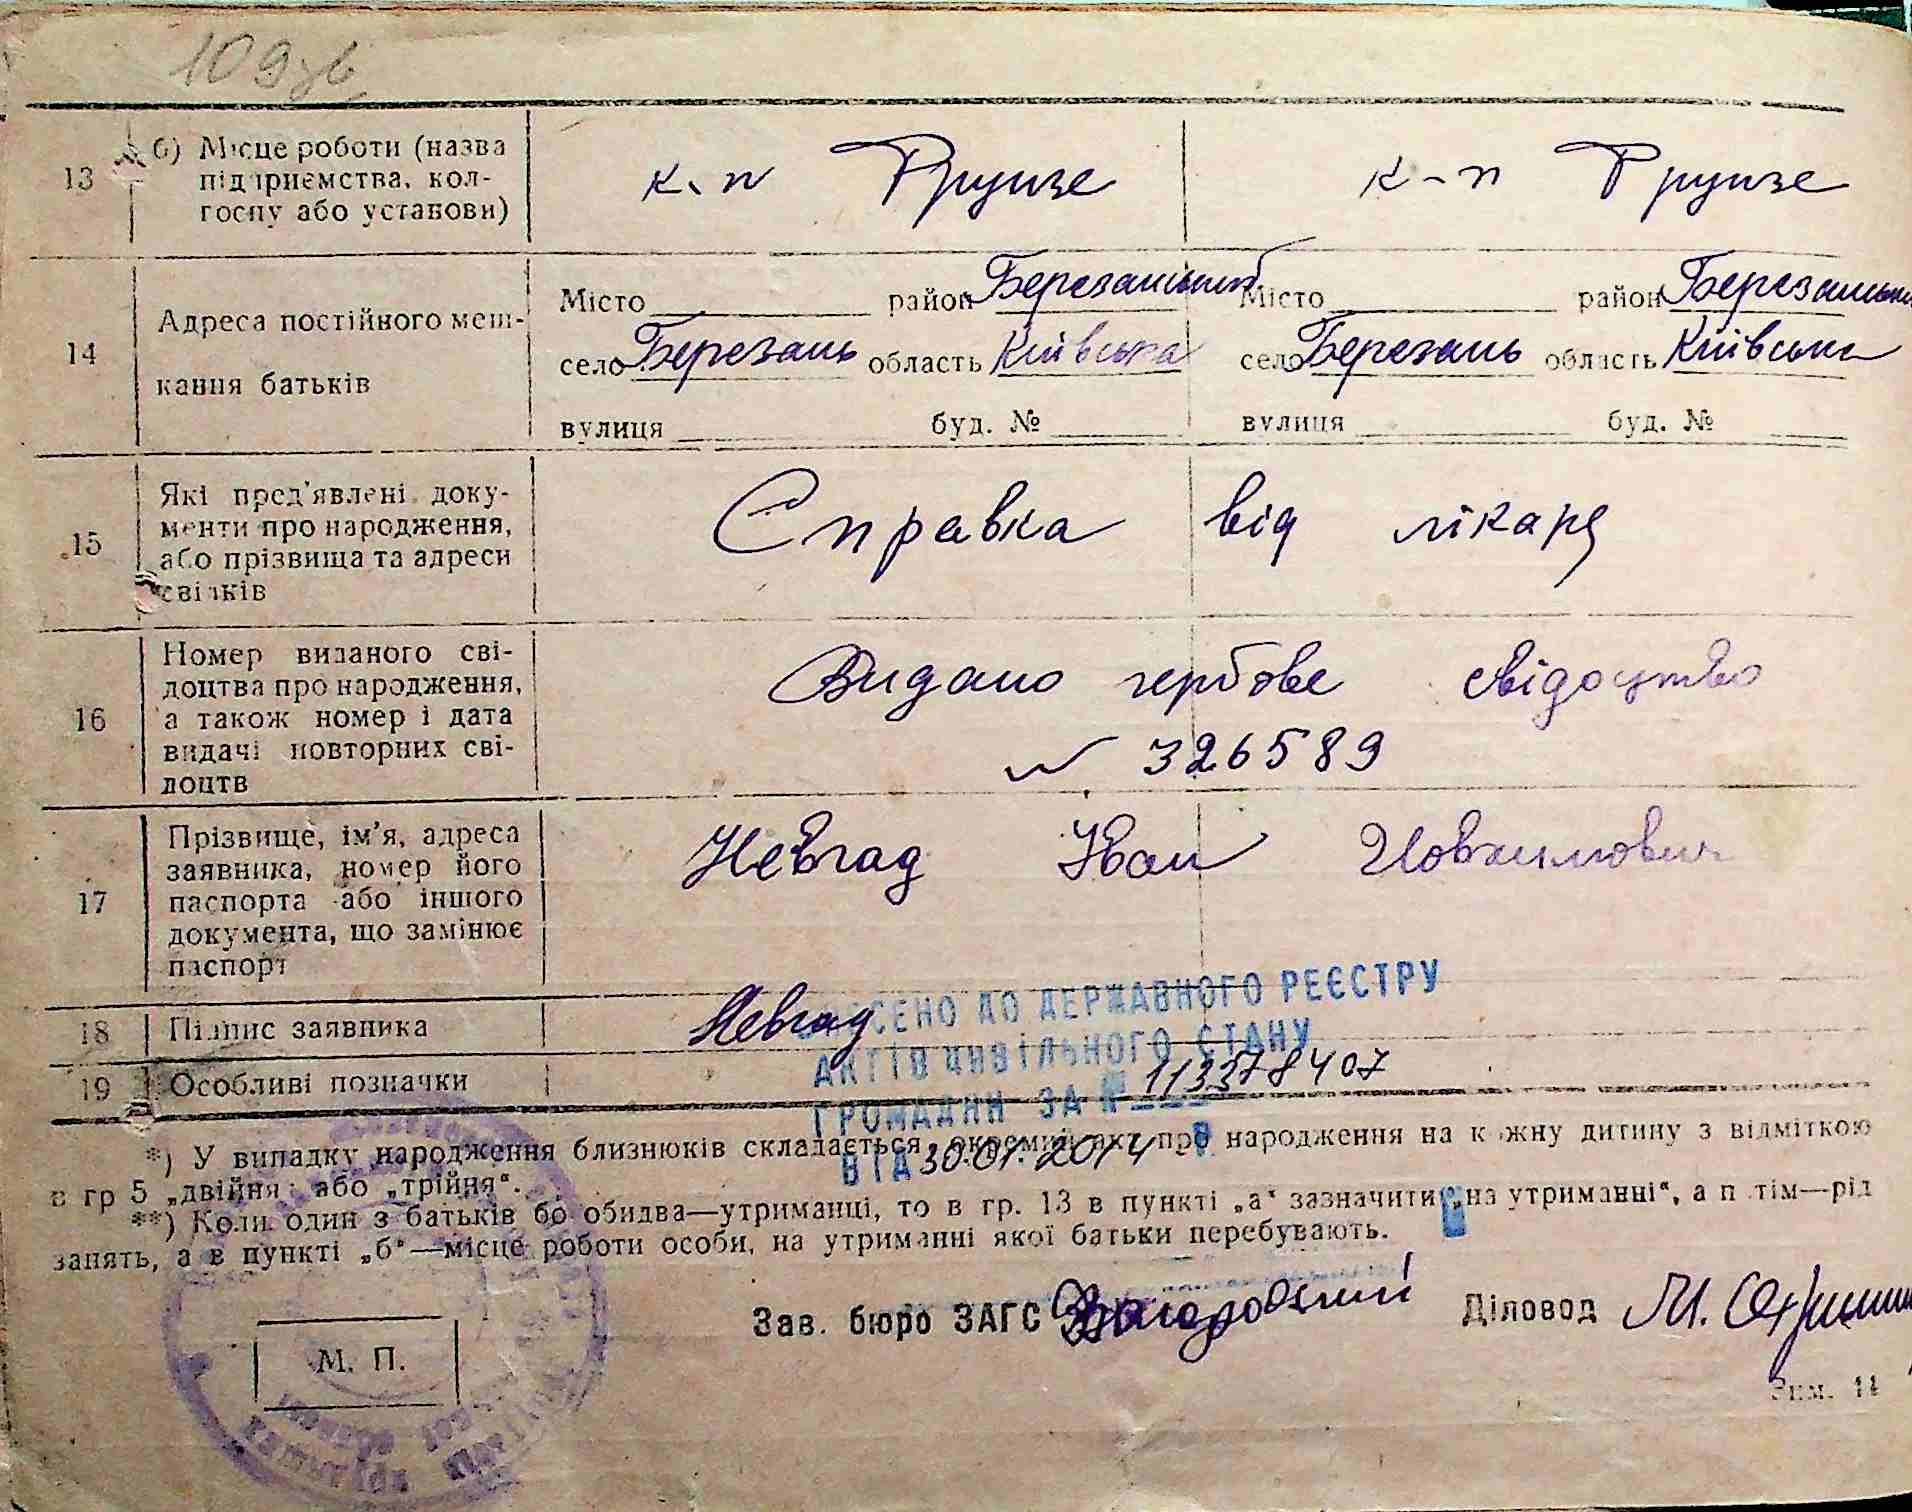 109зв
13 б) Місце роботи (назва підприємства, кол-госпу або установи) к-п Фрунзе к-п Фрунзе
14 Адреса постійного меш-кання батьків
Місто район Березанський Місто район Березанський
село Березань область Київська село Березань область Київська
вулиця буд. № вулиця буд. №
15 Які пред'явлені доку-менти про народження, або прізвища та адреси свідків Справка від лікаря
16 Номер виданого сві-доцтва про народження, а також номер і дата видачі повторних сві-доцтв Видано гербове свідоцтво
№ 326589
17 Прізвище, ім'я, адреса заявника, номер його паспорта або іншого документа, що замінює паспорт Невгад Іван Йовхимович
18 Підпис заявника Невгад
19 Особливі позначки
ВНЕСЕНО ДО ДЕРЖАВНОГО РЕЄСТРУ
АКТІВ ЦИВІЛЬНОГО СТАНУ
ГРОМАДЯН ЗА № 113378407
ВІД 30.01.2014 р.
*) У випадку народження близнюків складається окремий акт про народження на кожну дитину з відміткою
в гр 5 „двійня" або „трійня".
**) Коли один з батьків бо обидва—утриманці, то в гр. 13 в пункті „а" зазначити „на утриманні", а потім—рід
занять, а в пункті „б"—місце роботи особи, на утриманні якої батьки перебувають.
Зав. бюро ЗАГС Діловод М.
М. П.
Зам. 14